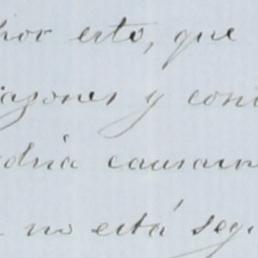 por esto, que
razones y con
odria causar
no está seg